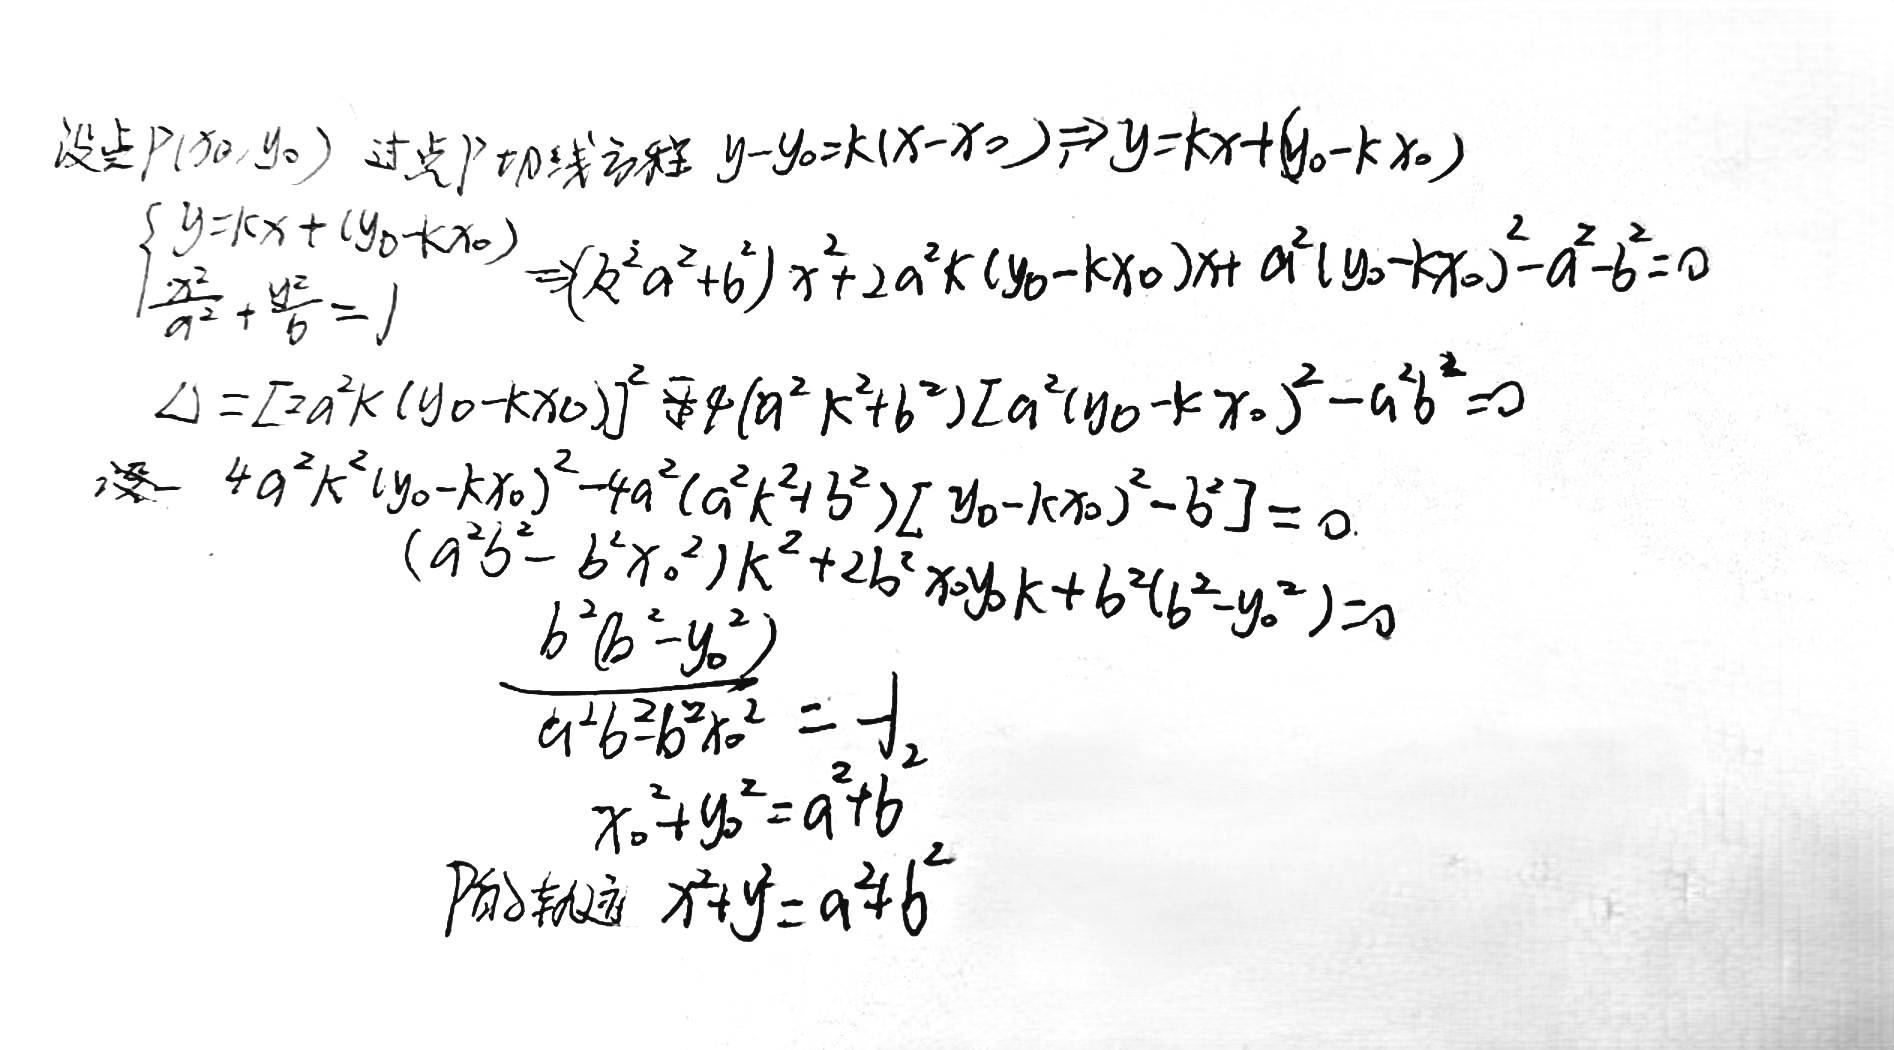 设点P(x₀,y₀) 过点P切线方程 y-y₀=k(x-x₀)⇒y=kx+(y₀-kx₀)
{y=kx+(y₀-kx₀)
x²/a²+y²/b=1 ⇒(k²a²+b²)x²+2a²k(y₀-kx₀)x+a²(y₀-kx₀)²-a²-b²=0
Δ=[2a²k(y₀-kx₀)]²-4(a²k²+b²)[a²(y₀-kx₀)²-a²b²=0
4a²k²(y₀-kx₀)²-4a²(a²k²+b²)[y₀-kx₀)²-b²]=0.
(a²b²-b²x₀²)k²+2b²x₀y₀k+b²(b²-y₀²)=0
b²(b²-y₀²)/a²b²-b²x₀²=-1
x₀²+y₀²=a²+b²
P的轨迹 x²+y²=a²+b²